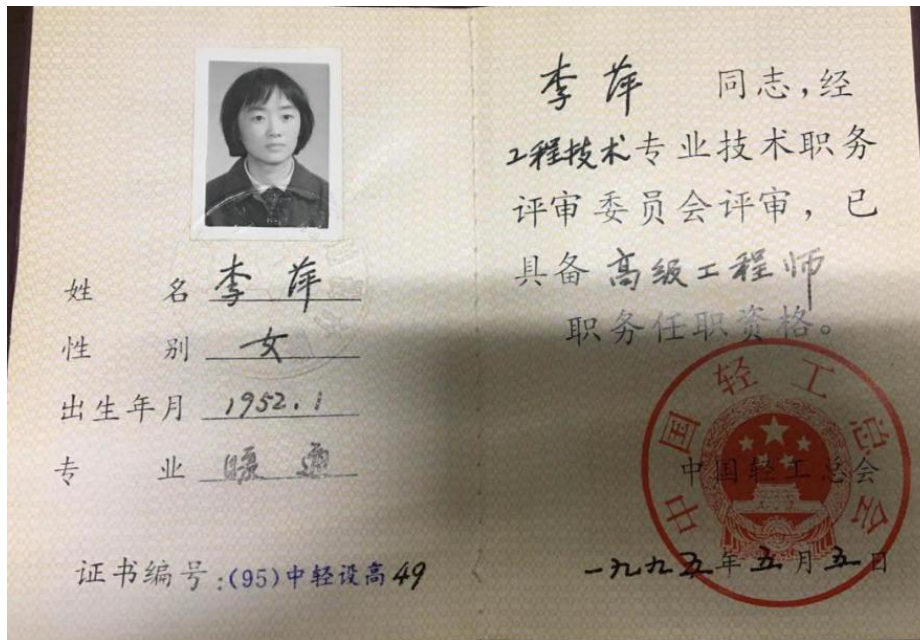 姓 名 李萍
性 别 女
出生年月 1952.1
专 业 暖通
证书编号:(95)中轻设高49
李萍 同志,经
工程技术专业技术职务
评审委员会评审,已
具备 高级工程师
职务任职资格。
中国轻工总会
中国轻工总会
一九九五年五月五日